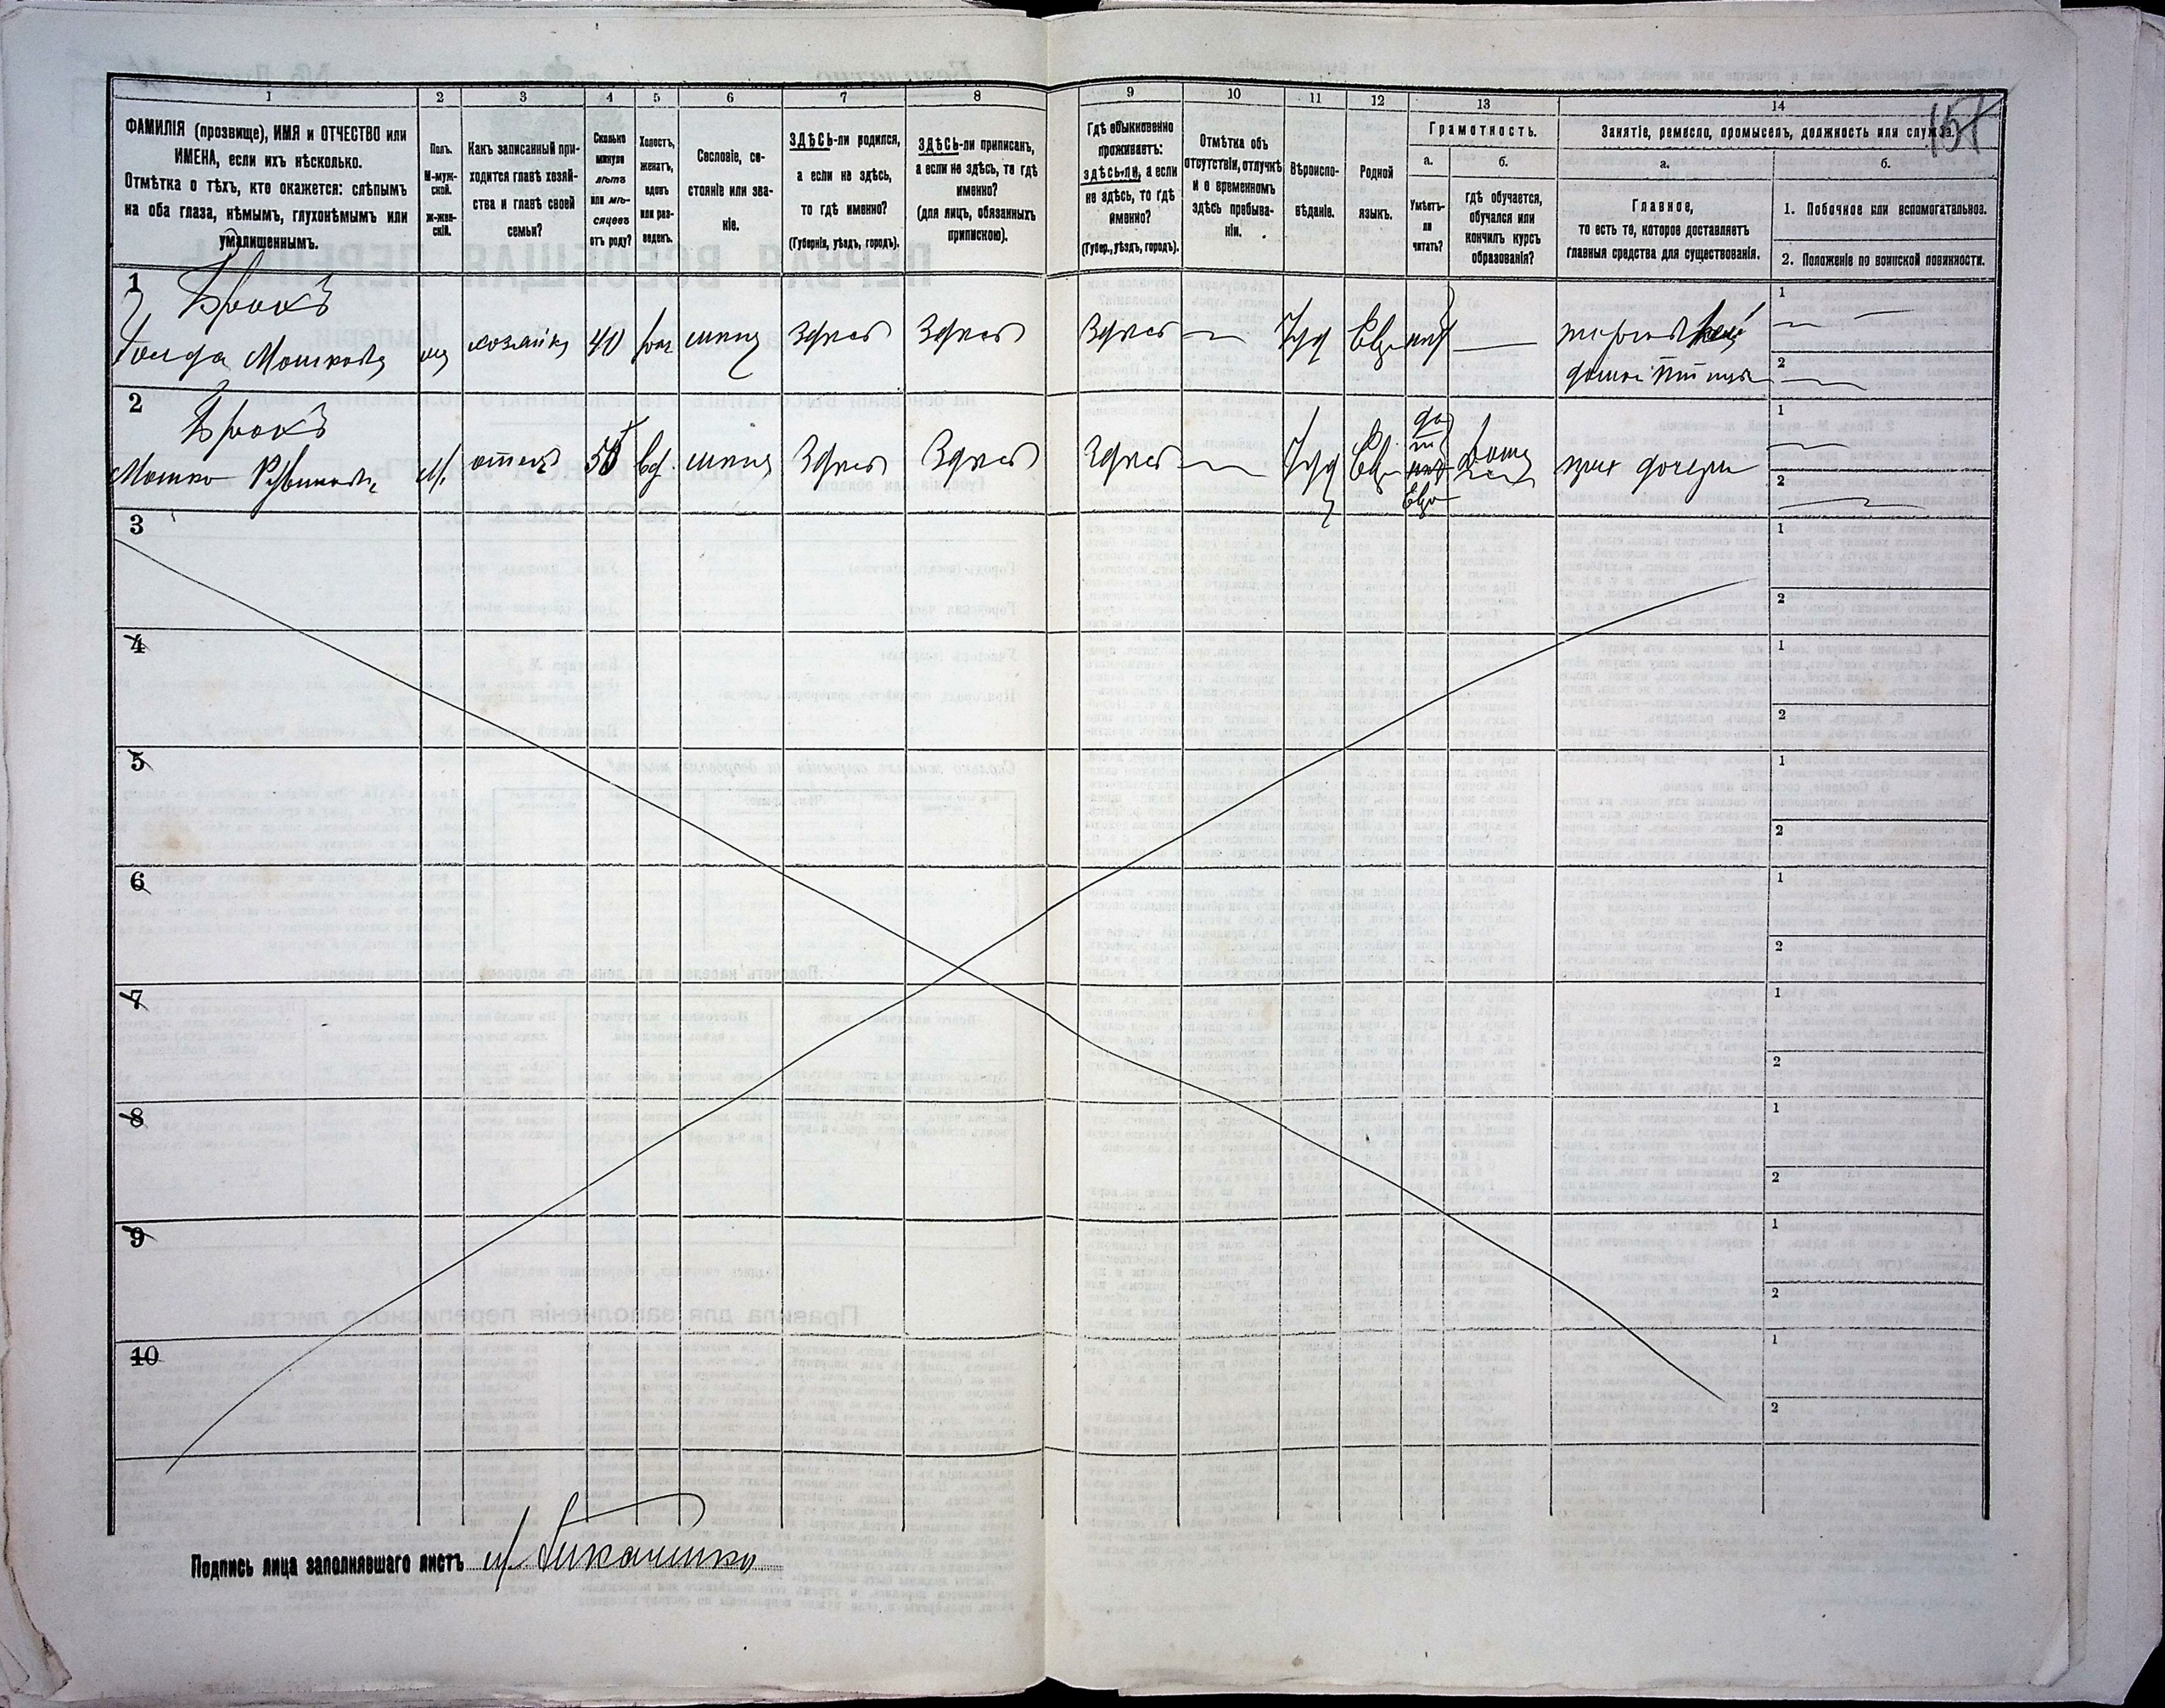 1
2
3
4
5
6
7
8
9
10
11
12
13
14
ФАМИЛІЯ (прозвище), ИМЯ и ОТЧЕСТВО или
ИМЕНА, если ихъ нѣсколько.
Отмѣтка о тѣхъ, кто окажется: слѣпымъ
на оба глаза, нѣмымъ, глухонѣмымъ или
умалишеннымъ.
Полъ.
М-муж-
ской.
Ж-жен-
скій.
Какъ записанный при-
ходится главѣ хозяй-
ства и главѣ своей
семьи?
Сколько
минуло
лѣтъ
или мѣ-
сяцевъ
отъ роду?
Холостъ,
женатъ,
вдовъ
или раз-
веденъ.
Сословіе, со-
стояніе или зва-
ніе.
ЗДѢСЬ-ли родился,
а если не здѣсь,
то гдѣ именно?
(Губернія, уѣздъ, городъ).
ЗДѢСЬ-ли приписанъ,
а если не здѣсь, то гдѣ
именно?
(для лицъ, обязанныхъ
припискою).
Гдѣ обыкновенно
проживаетъ:
здѣсь-ли, а если
не здѣсь, то гдѣ
именно?
(Губер., уѣздъ, городъ).
Отмѣтка объ
отсутствіи, отлучкѣ
и о временномъ
здѣсь пребыва-
ніи.
Вѣроиспо-
вѣданіе.
Родной
языкъ.
Грамотность.
а.
б.
Умѣетъ-
ли
читать?
гдѣ обучается,
обучался или
кончилъ курсъ
образованія?
Занятіе, ремесло, промыселъ, должность или служба.
157
а.
б.
Главное,
то есть то, которое доставляетъ
главныя средства для существованія.
1. Побочное или вспомогательное.
2. Положеніе по воинской повинности.
1
Брокъ
Мошкова
хозяйка
40
Здѣсь
Здѣсь
Здѣсь
Іуд
Евр
1
2
2
Брокъ
Мошко Рувиновъ
М.
отецъ
вд.
Здѣсь
Здѣсь
Здѣсь
Іуд
Евр
дома
при дочери
1
2
3
1
2
4
1
2
5
1
2
6
1
2
7
1
2
8
1
2
9
1
2
10
1
2
Подпись лица заполнявшаго листъ